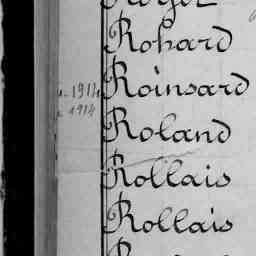 Rohard
1914 Roinsard
1914
Roland
Rollais
Rollais